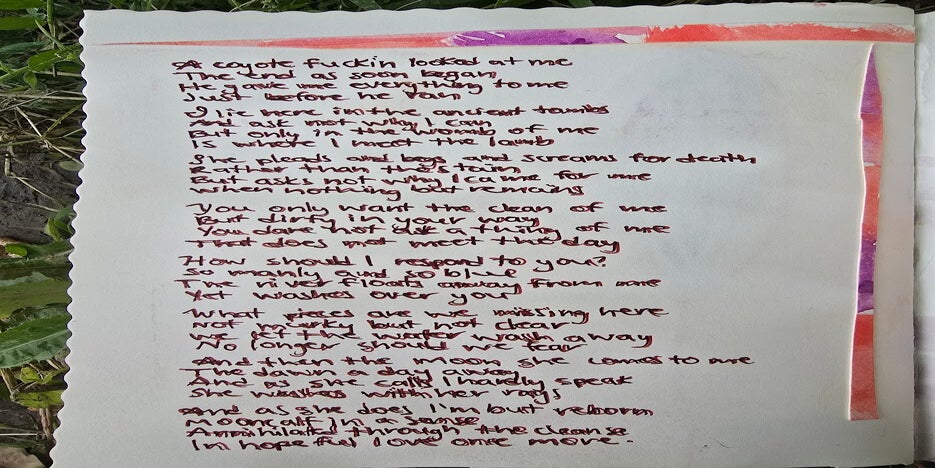 A coyote fuckin looked at me
The end as soon began
He gave me everything to me
Just before he ran
I lie here in the ancient tombs
And ask not why I can
But only in the womb of me
Is where I meet the lamb
She pleads and begs and screams for death
Rather than the stain
But asks not why I came for me
When nothing but remains
You only want the clean of me
But dirty in your way
You dare not ask a thing of me
That does not meet the day
How should I respond to you?
So manly and so blue
The river floats away from me
Yet washes over you
What pieces are we missing here
Not murky but not clear
We let the water wash away
No longer should we fear
And then the moon she comes to me
The dawn a day away
And as she calls I hardly speak
She washes with her rays
And as she does I'm but reborn
Mooncalf in a sense
Annihilate through the cleanse
I'm hopeful love once more.